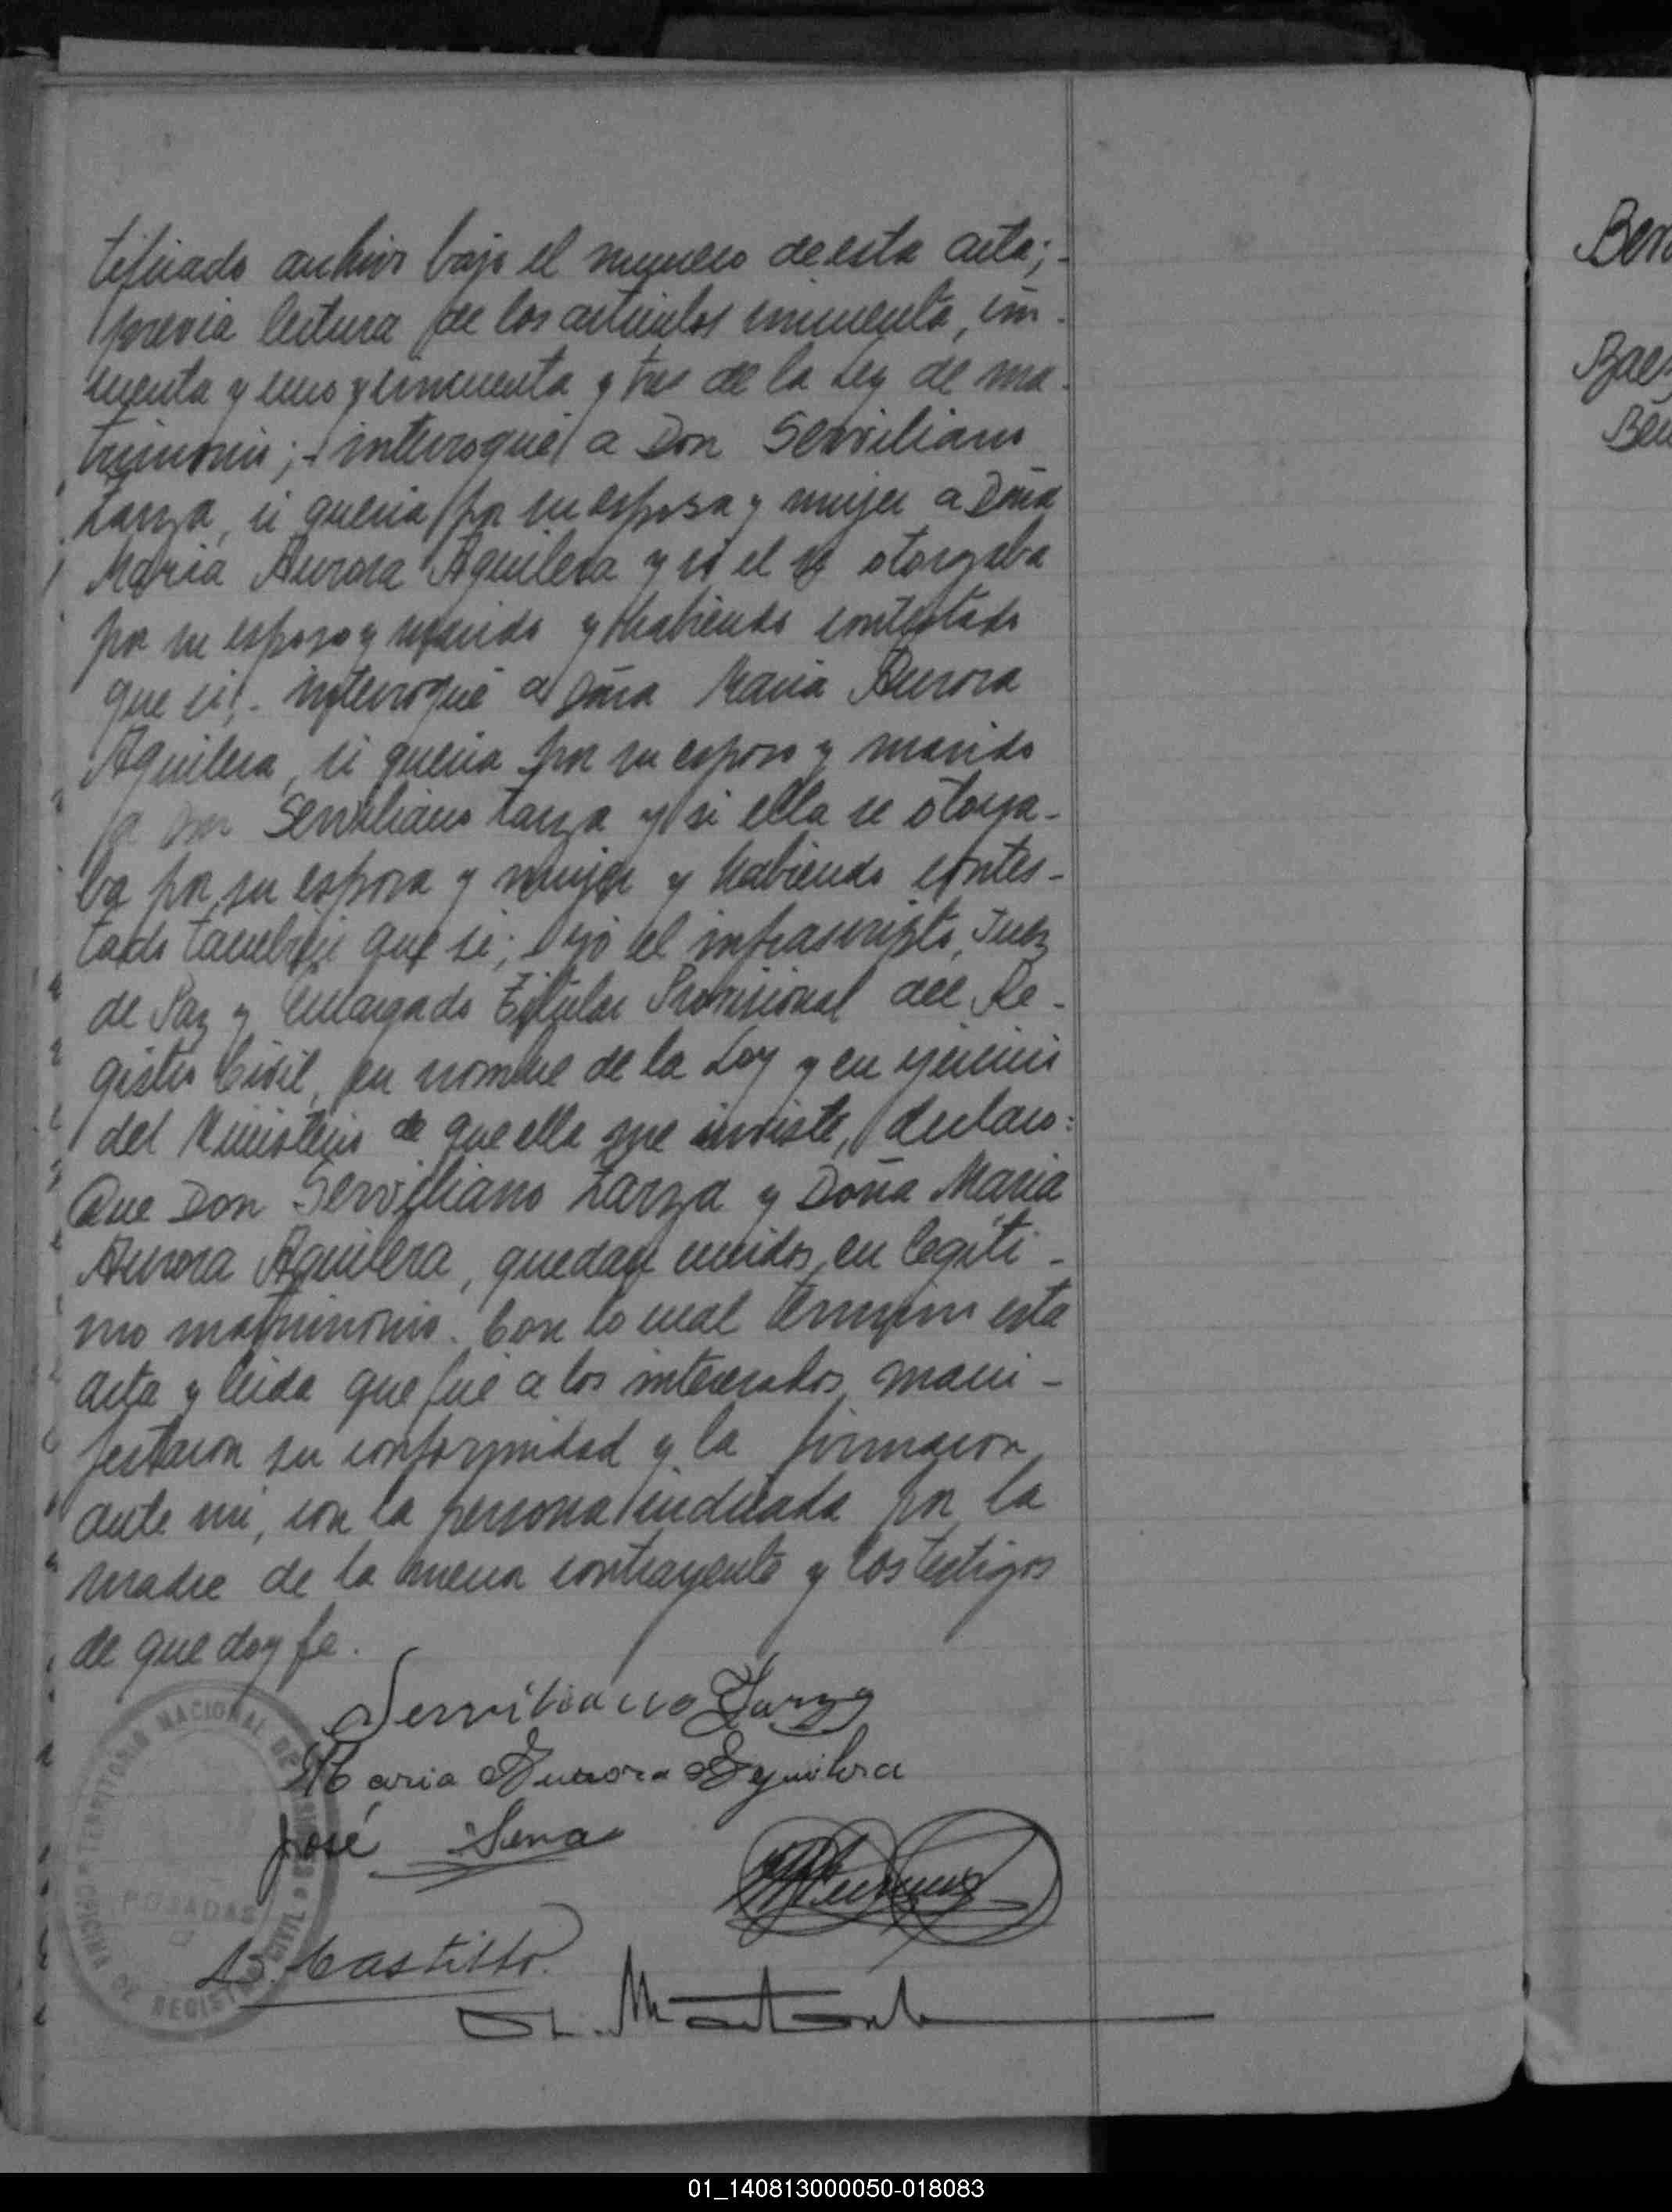 tificado archivo bajo el numero de esta acta;-
previa lectura de los articulos cincuenta, cin-
cuenta y uno y cincuenta y tres de la Ley de ma-
trimonio;- interrogué a Don Serviliano
Zarza, si queria por su esposa y mujer a Doña
Maria Aurora Aguilera y si el se otorgaba
por su esposo y marido y habiendo contestado
que si;- interrogué a Doña Maria Aurora
Aguilera, si queria por su esposo y marido
a Don Serviliano Zarza y si ella se otorga-
ba por su esposa y mujer y habiendo contes-
tado tambien que si; yo el infrascripto, Juez
de Paz y Encargado Titular Provisional del Re-
gistro Civil, en nombre de la Ley y en ejercicio
del Ministerio de que ella me inviste, declaro:
Que Don Serviliano Zarza y Doña Maria
Aurora Aguilera, quedan unidos en legiti-
mo matrimonio. Con lo cual termino esta
acta y leida que fué a los interesados, mani-
festaron su conformidad y la firmaron
ante mi, con la persona indicada por la
madre de la menor contrayente y los testigos
de que doy fe.
Serviliano Zarza
Maria Aurora Aguilera
José Sena
Castillo.
TERRITORIO NACIONAL DE MISIONES
POSADAS
OFICINA DE REGISTRO CIVIL
Ben
Bae
01_140813000050-018083